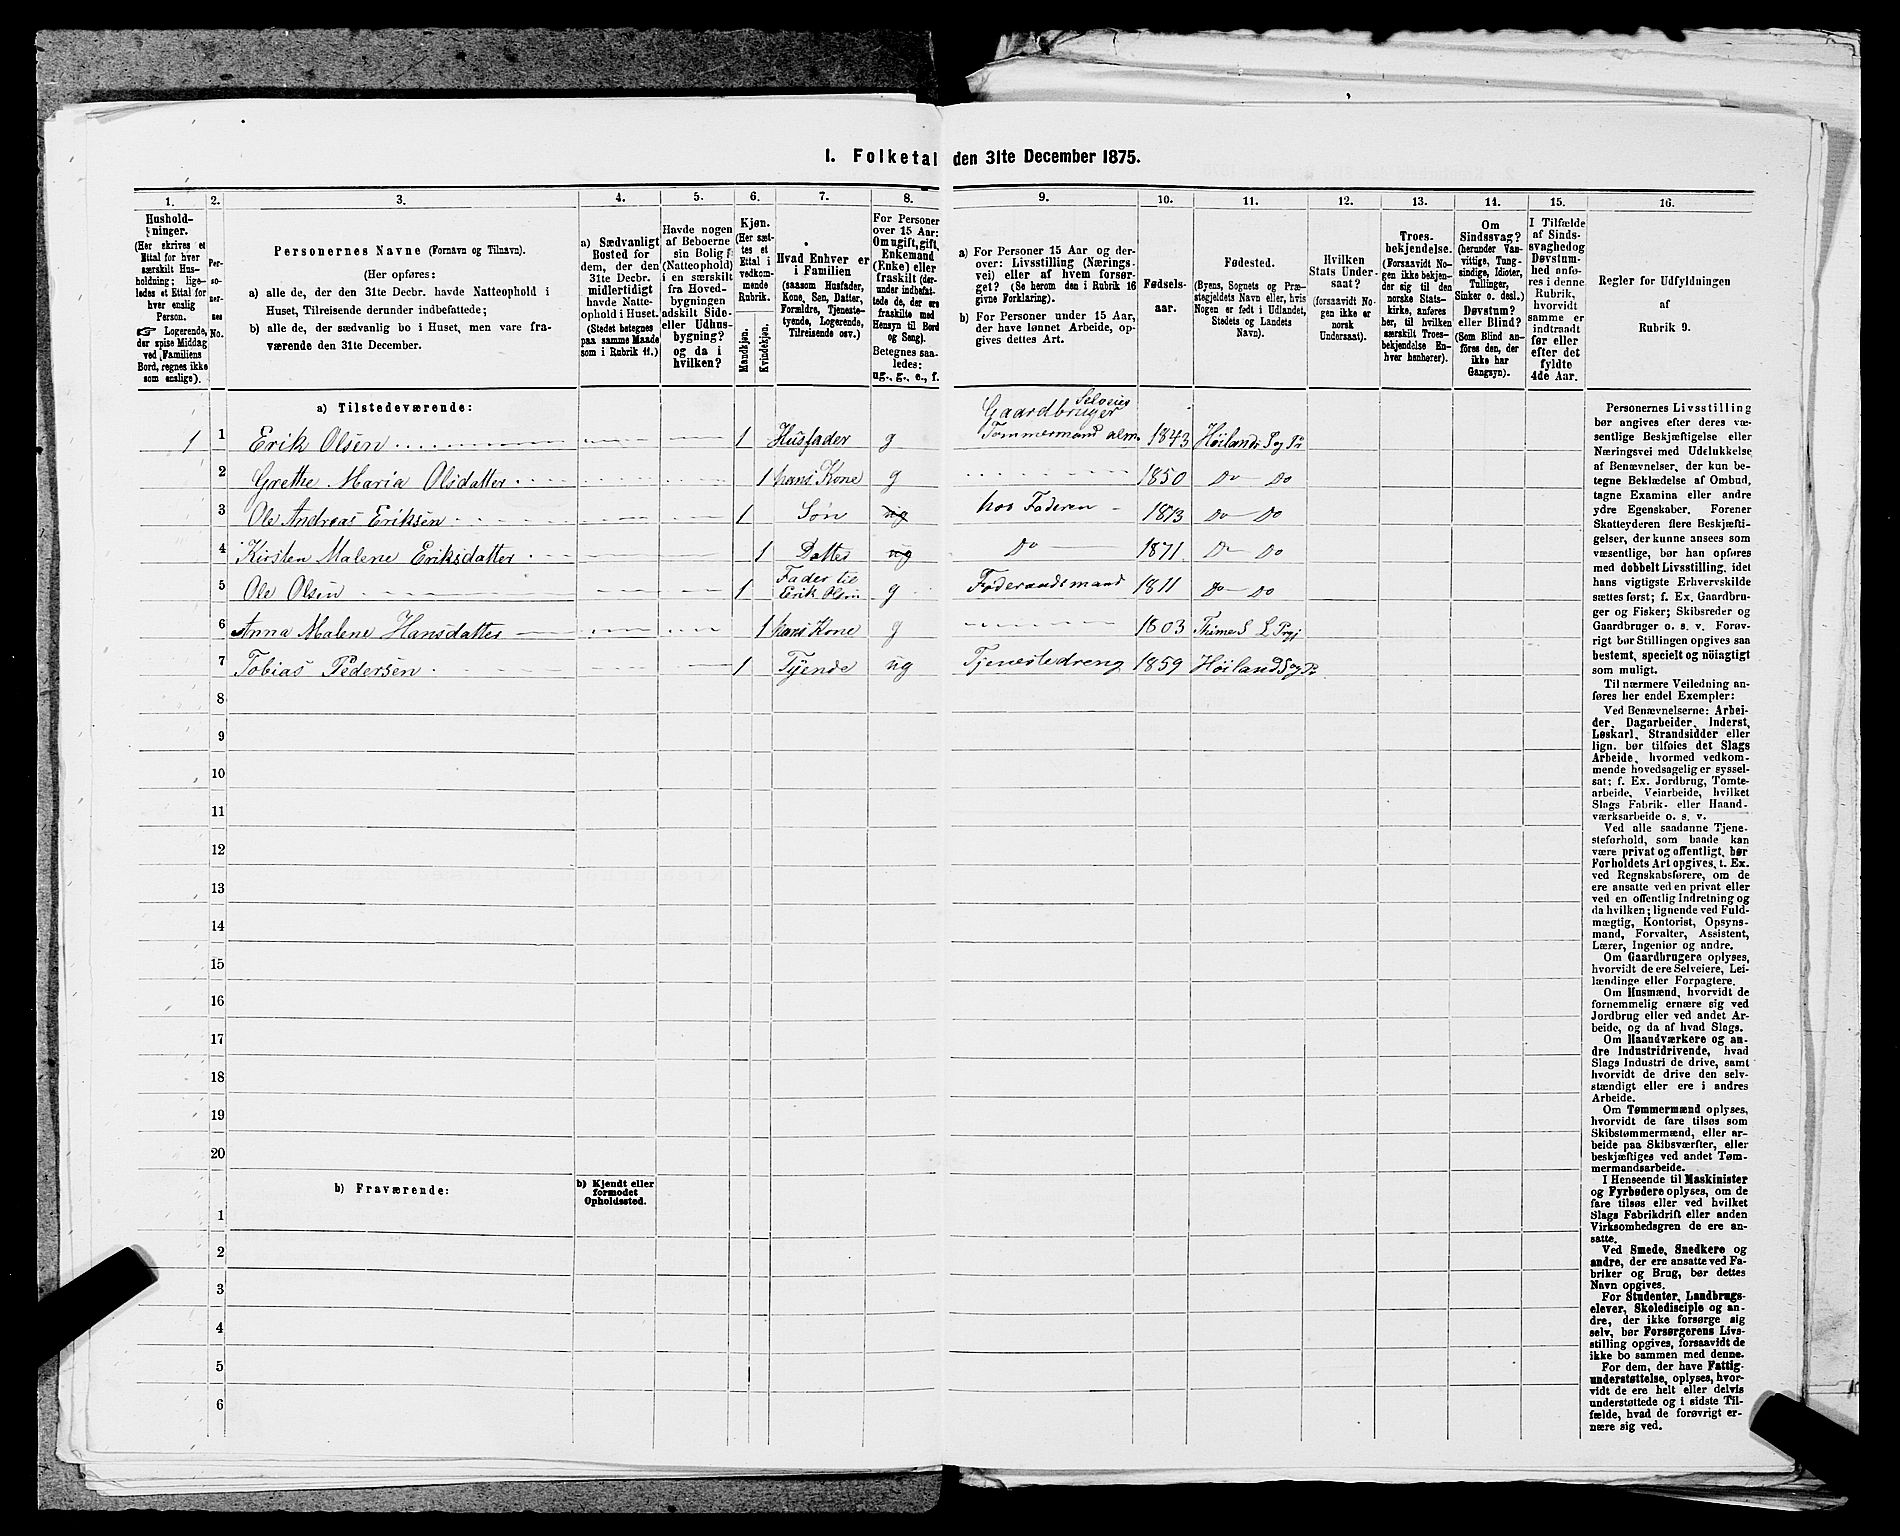 I. Folketal den 31te December 1875.
1. 2. 3. 4. 5. 6. 7. 8. 9. 10. 11. 12. 13. 14. 15. 16.
Hushold-
ninger.
(Her skrives et
Ettal for hver
særskilt Hus-
holdning; lige-
ledes et Ettal for
hver enslig
Person.
☞ Logerende,
der spise Middag
ved Familiens
Bord, regnes ikke
som enslige).
Per-
so-
ner-
nes
No.
Personernes Navne (Fornavn og Tilnavn).
(Her opføres:
a) alle de, der den 31te Decbr. havde Natteophold i
Huset, Tilreisende derunder indbefattede;
b) alle de, der sædvanlig bo i Huset, men vare fra-
værende den 31te December.
a) Sædvanligt
Bosted for
dem, der den
31te Decbr.
midlertidigt
havde Natte-
ophold i Huset.
(Stedet betegnes
paa samme Maade
som i Rubrik 11.)
Havde nogen
af Beboerne
sin Bolig
(Natteophold)
i en særskilt
fra Hoved-
bygningen
adskilt Side-
eller Udhus-
bygning?
og da i
hvilken?
Kjøn.
(Her sæt-
tes et
Ettal i
vedkom-
mende
Rubrik.
Mandkjøn.
Kvindekjøn.
Hvad Enhver er
i Familien
(saasom Husfader,
Kone, Søn, Datter,
Forældre, Tjeneste-
tyende, Logerende,
Tilreisende osv.)
For Personer
over 15 Aar:
Om ugift, gift,
Enkemand
(Enke) eller
fraskilt (der-
under indbefat-
tede de, der ere
fraskilte med
Hensyn til Bord
og Seng).
Betegnes saa-
ledes:
ug., g., e., f.
a) For Personer 15 Aar og der-
over: Livsstilling (Nærings-
vei) eller af hvem forsør-
get? (Se herom den i Rubrik 16
givne Forklaring).
b) For Personer under 15 Aar,
der have lønnet Arbeide, op-
gives dettes Art.
Fødsels-
aar.
Fødested.
(Byens, Sognets og Præ-
stegjeldets Navn eller, hvis
Nogen er født i Udlandet,
Stedets og Landets
Navn).
Hvilken
Stats Under-
saat?
(forsaavidt No-
gen ikke er
norsk
Undersaat).
Troes-
bekjendelse.
(Forsaavidt No-
gen ikke bekjen-
der sig til den
norske Stats-
kirke, anføres
her, til hvilken
særskilt Troes-
bekjendelse En-
hver henhører).
Om
Sindssvag?
(herunder Van-
vittige, Tung-
sindige, Idioter,
Tullinger,
Sinker o. desl.)
Døvstum?
eller Blind?
(Som Blind an-
føres den, der
ikke har
Gangsyn).
I Tilfælde
af Sinds-
svaghed og
Døvstum-
hed anfø-
res i denne
Rubrik,
hvorvidt
samme er
indtraadt
før eller
efter det
fyldte
4de Aar.
Regler for Udfyldningen
af
Rubrik 9.
a) Tilstedeværende:
Gaardbruger Selveier
1 1 Erik Olsen 1 Husfader g Tømmermand alm. 1843 Høilands S og Pr
2 Grethe Maria Olsdatter 1 hans Kone g 1850 Do Do
3 Ole Andreas Eriksen 1 Søn ug hos Faderen 1873 Do Do
4 Kirsten Malene Eriksdatter 1 Datter ug Do 1871 Do Do
Fader til
5 Ole Olsen 1 Erik Olsen g Føderaadsmand 1811 Do Do
6 Anna Malene Hansdatter 1 hans Kone g 1803 Thime S L Prgj
7 Tobias Pedersen 1 Tyende ug Tjenestedreng 1859 Høiland S og Pr
8
9
10
11
12
13
14
15
16
17
18
19
20
b) Fraværende:
b) Kjendt eller
formodet
Opholdssted.
1
2
3
4
5
6
Personernes Livsstilling
bør angives efter deres væ-
sentlige Beskjæftigelse eller
Næringsvei med Udelukkelse
af Benævnelser, der kun be-
tegne Beklædelse af Ombud,
tagne Examina eller andre
ydre Egenskaber. Forener
Skatteyderen flere Beskjæfti-
gelser, der kunne ansees som
væsentlige, bør han opføres
med dobbelt Livsstilling, idet
hans vigtigste Erhvervskilde
sættes først; f. Ex. Gaardbru-
ger og Fisker; Skibsreder og
Gaardbruger o. s. v. Forøv-
rigt bør Stillingen opgives saa
bestemt, specielt og nöiagtigt
som muligt.
Til nærmere Veiledning an-
føres her endel Exempler:
Ved Benævnelserne: Arbei-
der, Dagarbeider, Inderst,
Løskarl, Strandsidder eller
lign. bør tilføies det Slags
Arbeide, hvormed vedkom-
mende hovedsagelig er syssel-
sat; f. Ex. Jordbrug, Tomte-
arbeide, Veiarbeide, hvilket
Slags Fabrik- eller Haand-
værksarbeide o. s. v.
Ved alle saadanne Tjene-
steforhold, som baade kan
være privat og offentligt, bør
Forholdets Art opgives, t. Ex.
ved Regnskabsførere, om de
ere ansatte ved en privat eller
ved en offentlig Indretning og
da hvilken; lignende ved Fuld-
mægtig, Kontorist, Opsyns-
mand, Forvalter, Assistent,
Lærer, Ingeniør og andre.
Om Gaardbrugere oplyses,
hvorvidt de ere Selveiere, Lei-
lændinge eller Forpagtere.
Om Husmænd, hvorvidt de
fornemmelig ernære sig ved
Jordbrug eller ved andet Ar-
beide, og da af hvad Slags.
Om Haandværkere og an-
dre Industridrivende, hvad
Slags Industri de drive, samt
hvorvidt de drive den selv-
stændigt eller ere i andres
Arbeide.
Om Tømmermænd oplyses,
hvorvidt de fare tilsøs som
Skibstømmermænd, eller ar-
beide paa Skibsværfter, eller
beskjæftiges ved andet Tøm-
mermandsarbeide.
I Henseende til Maskinister
og Fyrbødere oplyses, om de
fare tilsøs eller ved hvilket
Slags Fabrikdrift eller anden
Virksomhedsgren de ere an-
satte.
Ved Smede, Snedkere og
andre, der ere ansatte ved Fa-
briker og Brug, bør dettes
Navn opgives.
For Studenter, Landbrugs-
elever, Skoledisciple og an-
dre, der ikke forsørge sig
selv, bør Forsørgerens Livs-
stilling opgives, forsaavidt de
ikke bo sammen med denne.
For dem, der have Fattig-
understøttelse, oplyses, hvor-
vidt de ere helt eller delvis
understøttede og i sidste Til-
fælde, hvad de forøvrigt er-
nære sig ved.